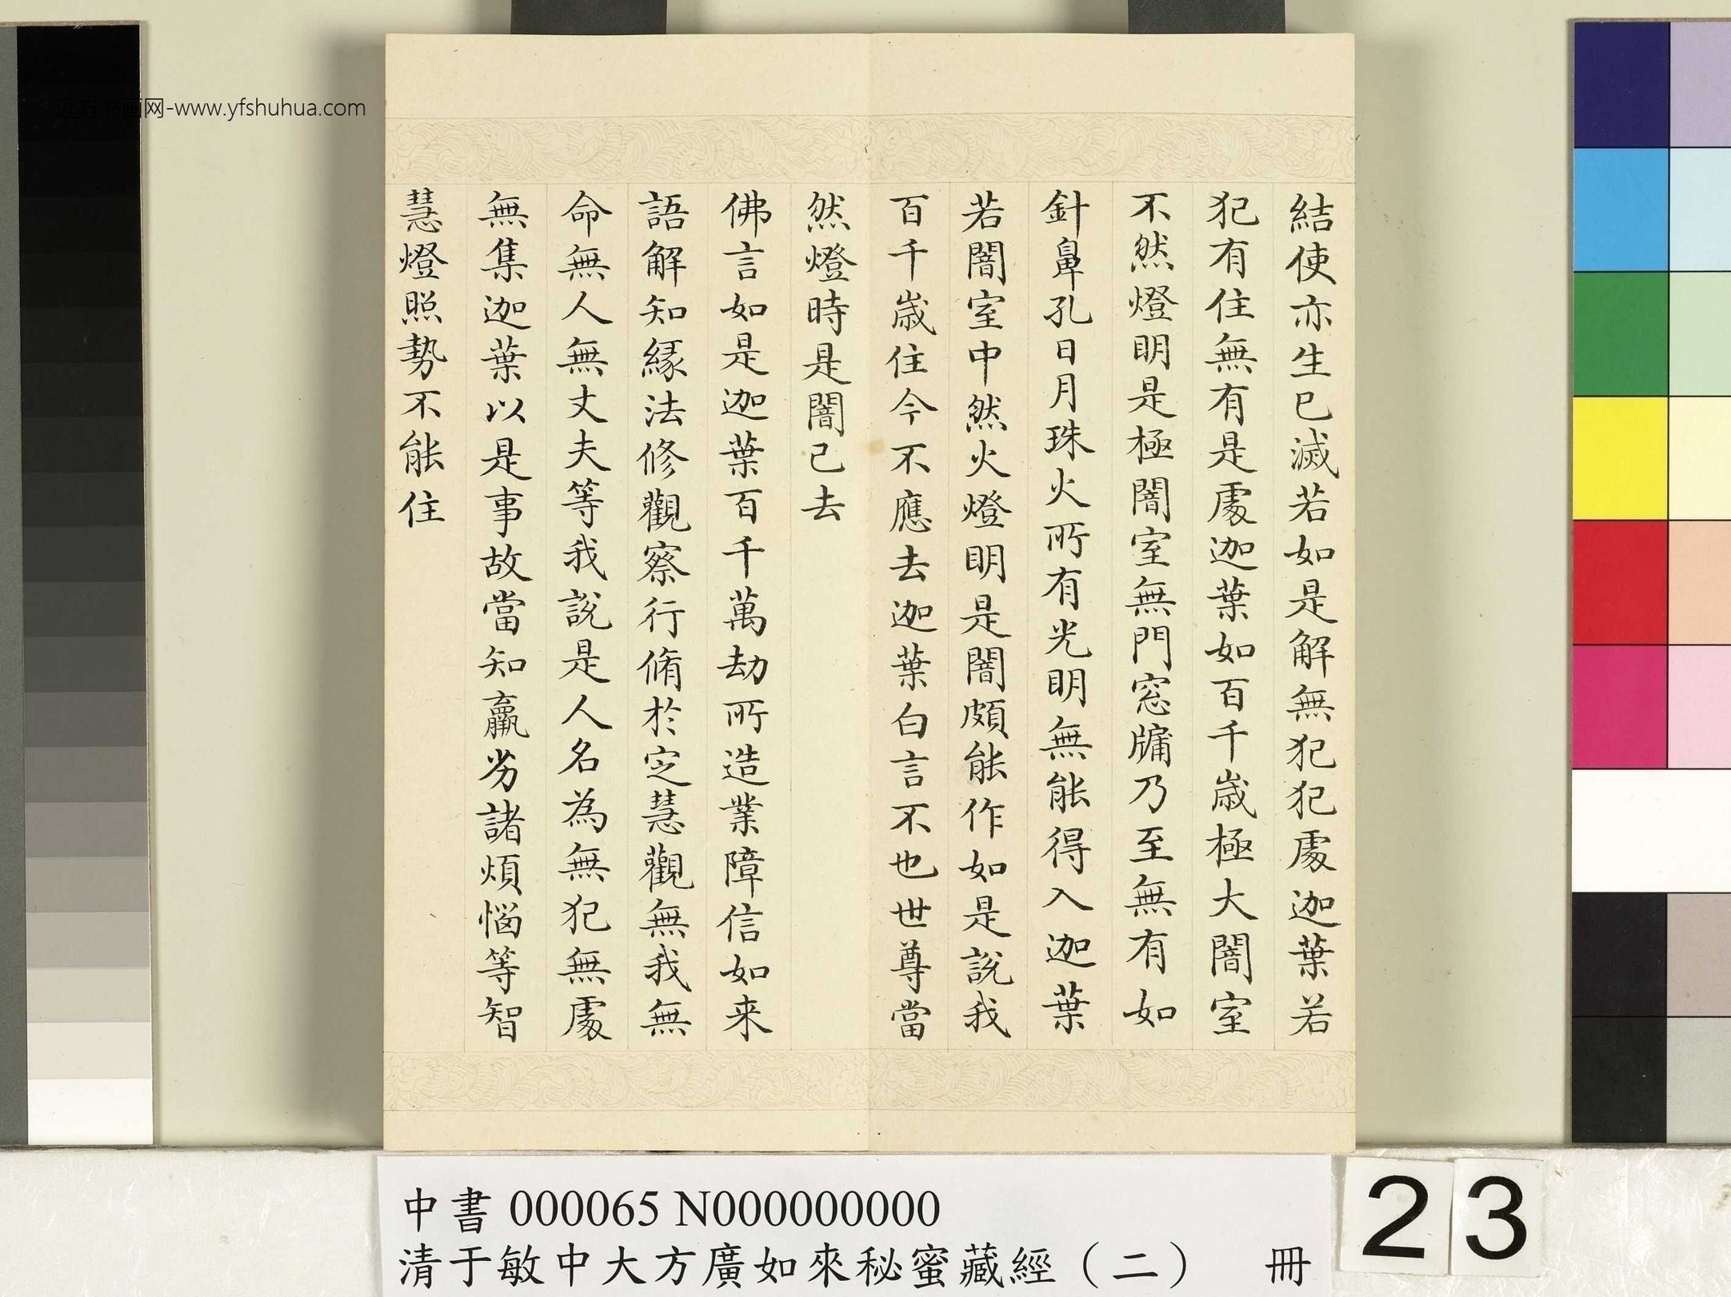 结使亦生已滅若如是解無犯犯處迦葉若
犯有住無有是處迦葉如百千歲極大闇室
不然燈明是極闇室無門窓牖乃至無有如
針鼻孔日月珠火所有光明無能得入迦葉
若闇室中然火燈明是闇頗能作如是說我
百千歲住今不應去迦葉白言不也世尊當
然燈時是闇已去
佛言如是迦葉百千萬劫所造業障信如来
語解知緣法修觀察行脩於定慧觀無我無
命無人無丈夫等我說是人名為無犯無處
無集迦葉以是事故當知羸劣諸煩惱等智
慧燈照勢不能住
远方书画网-www.yfshuhua.com
中書 000065 N000000000
清于敏中大方廣如來秘蜜藏經（二） 冊
23